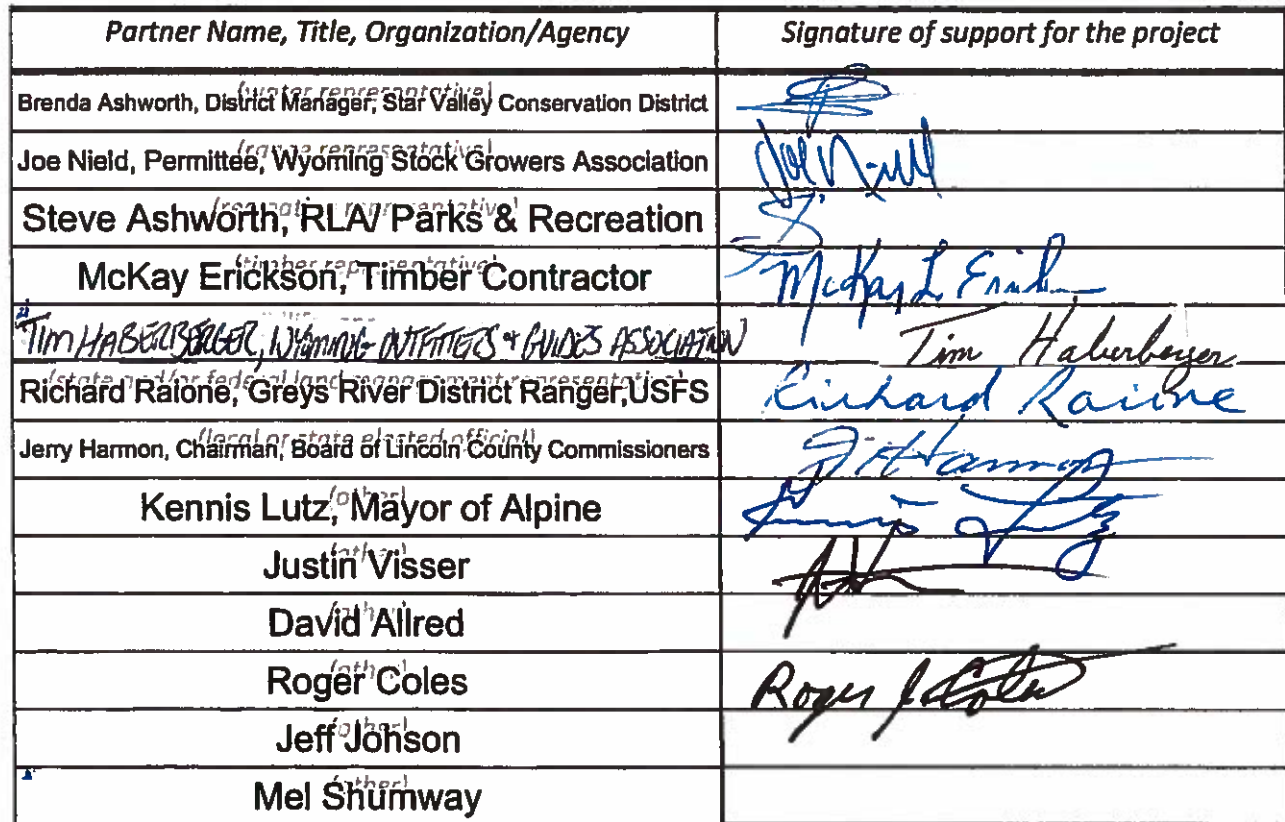 Partner Name, Title, Organization/Agency Signature of support for the project
(water representative)
Brenda Ashworth, District Manager, Star Valley Conservation District
(range representative)
Joe Nield, Permittee, Wyoming Stock Growers Association Joe Nield
(recreation representative)
Steve Ashworth, RLA/ Parks & Recreation
(timber representative)
McKay Erickson, Timber Contractor McKay L Erick
TIM HABERBERGER, WYOMING OUTFITTERS & GUIDES ASSOCIATION Tim Haberberger
(state and/or federal land management representative)
Richard Raione, Greys River District Ranger,USFS Richard Raione
(local or state elected official)
Jerry Harmon, Chairman, Board of Lincoln County Commissioners J Harmon
(other)
Kennis Lutz, Mayor of Alpine Kennis Lutz
(other)
Justin Visser
(other)
David Allred
(other)
Roger Coles Roger J Coles
(other)
Jeff Johson
(other)
Mel Shumway